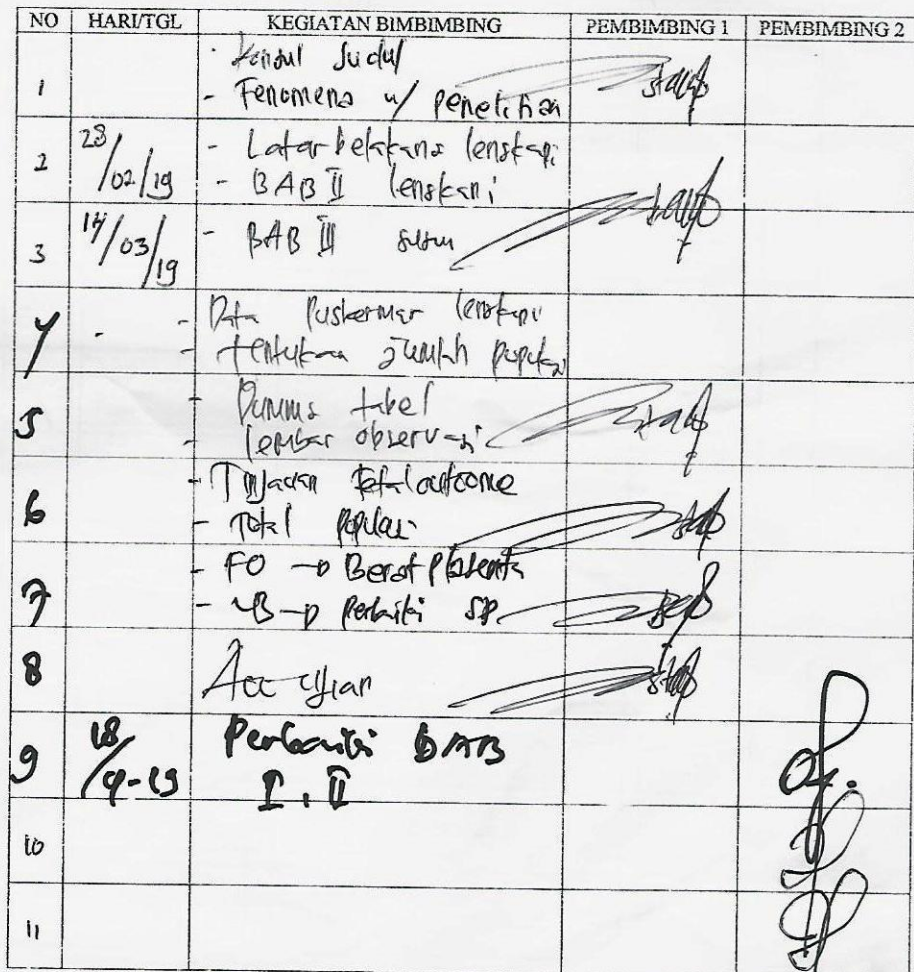 NO HARI/TGL KEGIATAN BIMBIMBING PEMBIMBING 1 PEMBIMBING 2
1 - Konsul Judul
- Fenomena u/ penelitian
2 28/02/19 - Latar belakang lengkapi
- BAB II lengkapi
3 14/03/19 - BAB III susun
4 - - Data Puskesmas lengkapi
- tentukan jumlah populasi
5 - Dummy tabel
- lembar observasi
6 - Tinjauan Fetal outcome
- Total populasi
7 - FO → Berat Plasenta
- → Perbaiki
8 Acc ujian
9 18/4-19 Perbaiki BAB
I, II
10
11